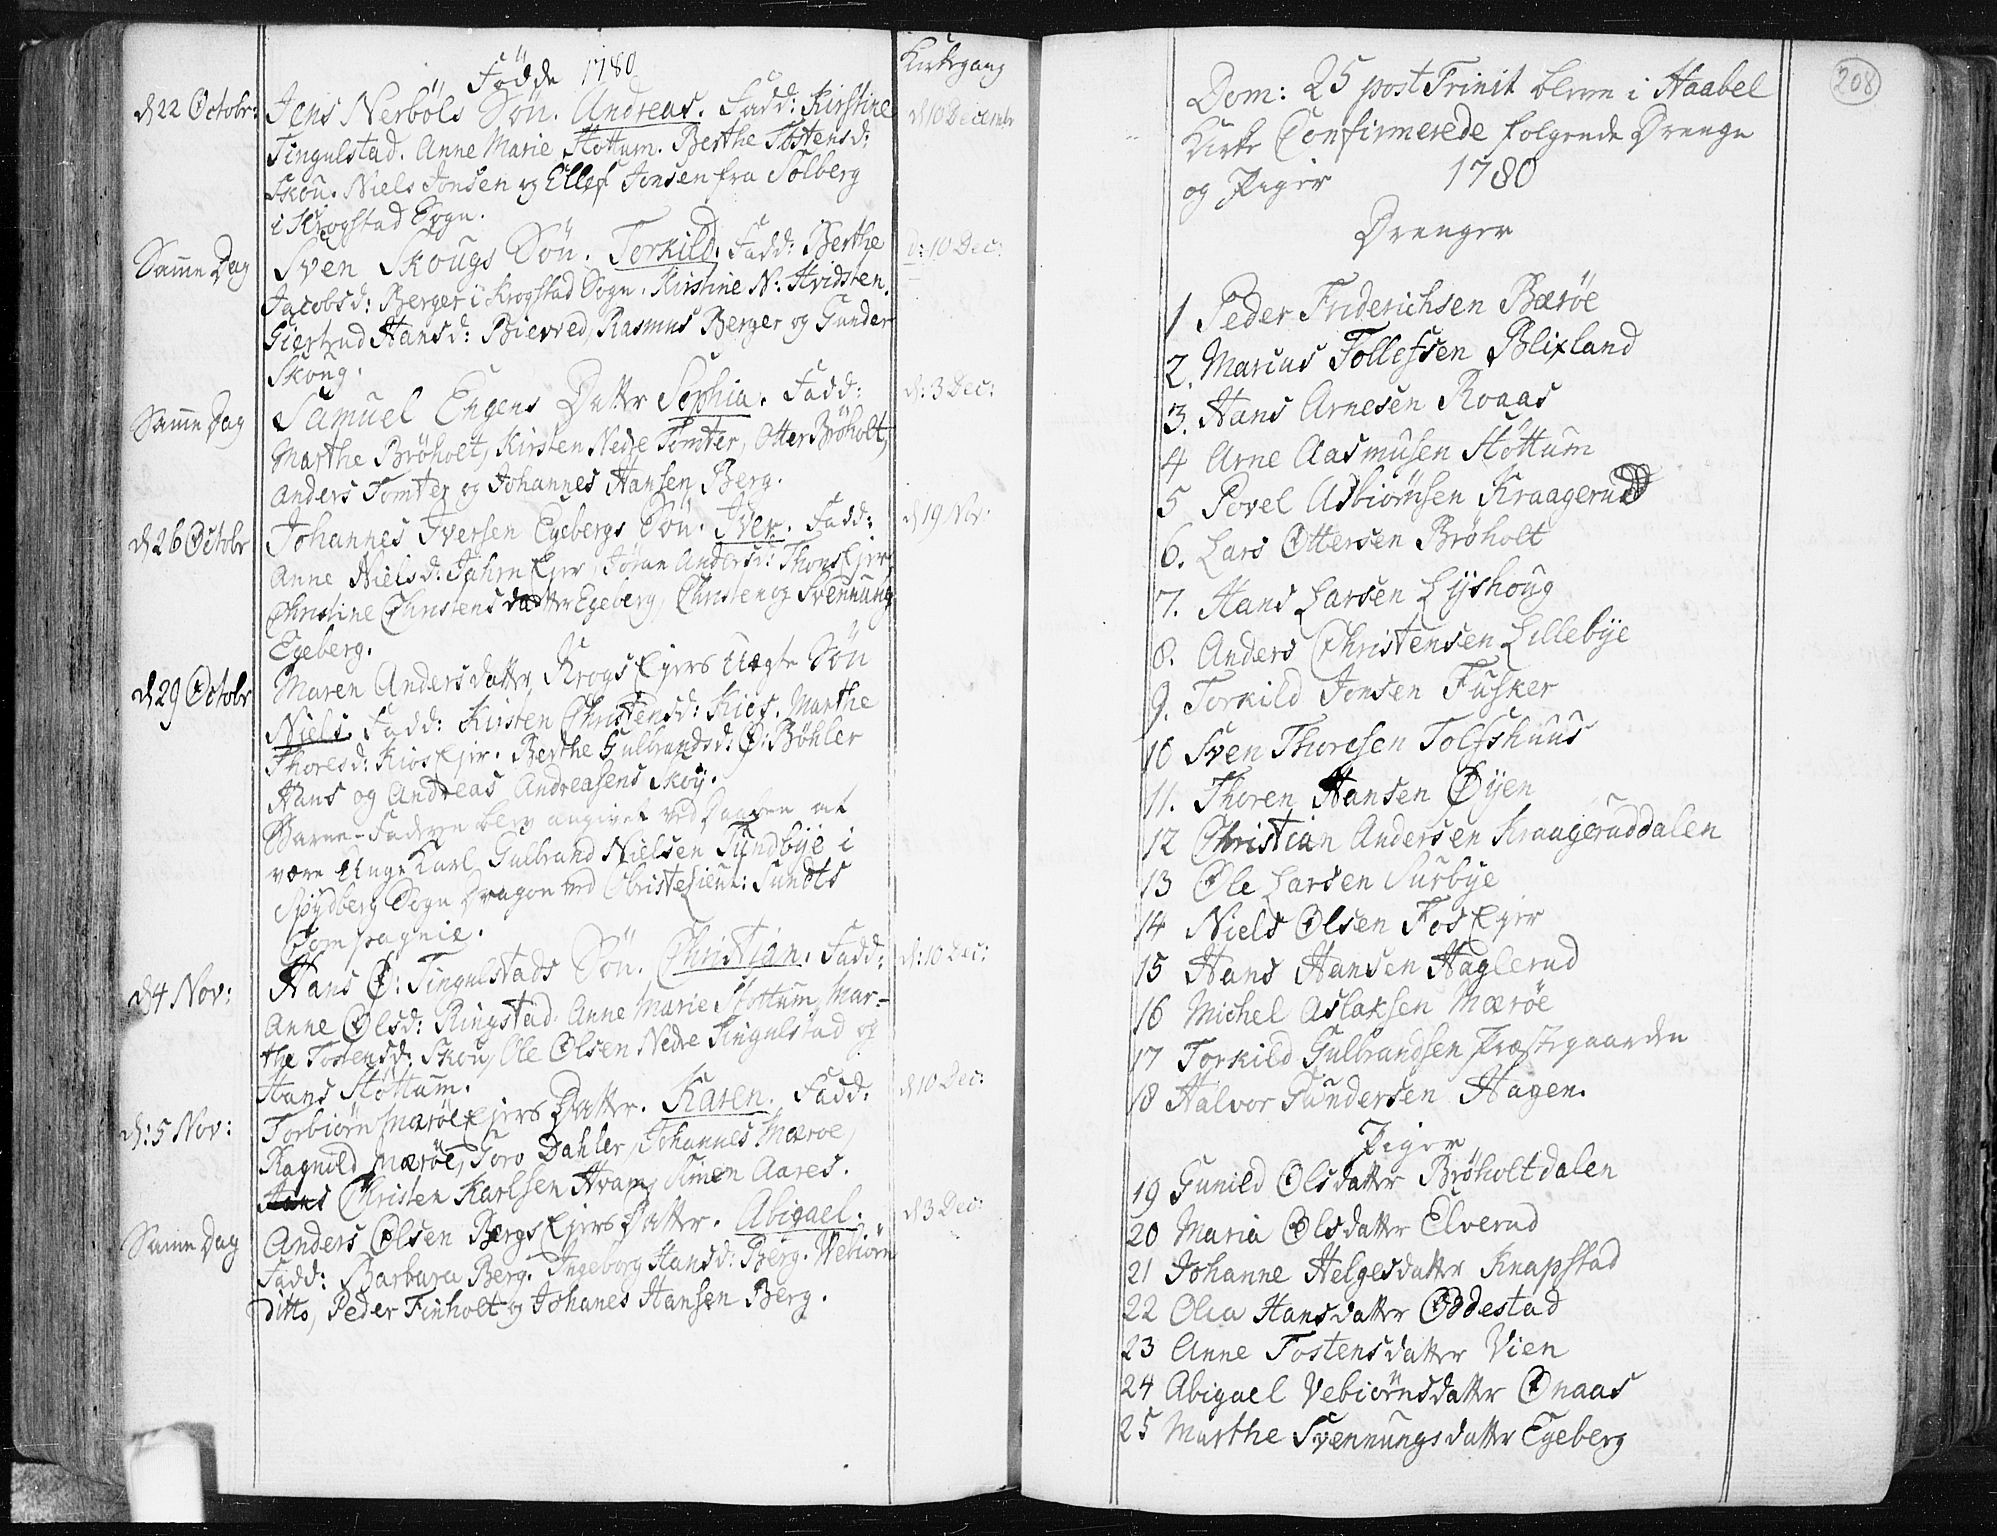 Födde 1780
Kirkegang
d 22 Octobr: Jens Nerböls Sön. Andreas. Fadd: Kirstine
d 10 Decembr
Tingulstad. Anne Marie Støttum. Berthe Tostensd:
Skou. Niels Jonsen og Ellef Jonsen fra Solberg
i Krogstad Sogn.
Same Dag Sven Skougs Sön. Torkild. Fadd: Berthe
d: 10 Dec:
Jacobsd: Berger i Krogstad Sogn. Kirstine N: Hvidsten.
Giertrud Hansd: Bievred, Rasmus Berger og Gunder
Skoug.
Same Dag Samuel Engens Datter Sophia. Fadd:
d: 3 Dec:
Marthe Brøholt, Kirsten Nedre Tomter, Otter Brøholt,
Anders Tomter og Johannes Hansen Berg.
d 26 Octobr Johannes Iversen Egebergs Sön. Iver. Fadd:
d 19 Nov.
Anne Nielsd: Jahren Ejer, Jøran Andersd: Thons Ejer,
Christine Christensdatter Egeberg, Christen og Svennung
Egeberg.
d 29 Octobr Maren Andersdatter Krogs Ejers Uægte Sön
Niels. Fadd: Kirsten Christensd: Kios. Marthe
Thoresd: Kios Ejer. Berthe Gulbrandsd: Ø: Bøhler
Hans og Andreas Andreasens Skoy.
Barne-Faderen blev angivet ved Daaben at
være Unge Karl Gulbrand Nielsen Sundbye i
Spydberg Sogn Dragon ved Lieut: Sundts
Compagnie.
d 4 Nov: Hans Ø: Tingulstads Sön. Christian. Fadd:
d: 10 Dec:
Anne Olsd: Ringstad. Anne Marie Støttum, Mar-
the Tostensd: Skou, Ole Olsen Nedre Tingulstad og
Hans Støttum.
d: 5 Nov: Torbiörn Mærøe Ejers Datter. Karen. Fadd:
d 10 Dec:
Ragnild Mærøe, Toro Dahler, Johannes Mærøe,
Hans Christen Karlsen Hvam, Simen Aares.
Same Dag Anders Olsen Bergs Ejers Datter. Abigael.
d 3 Dec:
Fadd: Barbara Berg. Ingeborg Hansd: Berg. Vebiørn
Ditto, Peder Finholt og Johanes Hansen Berg.
208
Dom: 25 post Trinit bleve i Haabel
Kirke Confirmerede følgende Drenge
og Piger 1780
Drenger
1 Peder Friderichsen Bærøe
2. Marcus Tollefsen Blixland
3. Hans Arnesen Roaas
4 Arne Aasmusen Støttum
5 Povel Asbiørnsen Kraagerud
6. Lars Ottersen Brøholt
7. Hans Larsen Lyshoug
8. Anders Christensen Lillebye
9. Torkild Jonsen Fusker
10 Sven Thoresen Tolfshuus
11. Thoren Hansen Øyen
12 Christian Andersen Kraageruddalen
13 Ole Larsen Surbye
14 Niels Olsen Fos Ejer
15 Hans Hansen Haglerud
16 Michel Aslaksen Mærøe
17 Torkild Gulbrandsen Præstegaarden
18 Halvor Gundersen Hagen.
Piger
19 Gunild Olsdatter Brøholtdalen
20 Maria Olsdatter Elverud
21 Johanne Helgesdatter Knapstad
22 Olea Hansdatter Oddestad
23 Anne Tostensdatter Vien
24 Abigael Vebiørnsdatter Onaas
25 Marthe Svennungsdatter Egeberg